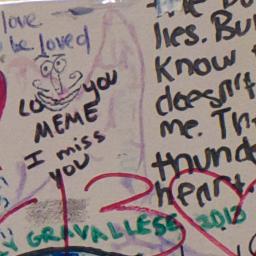 love
be loved
YOU
MEME
I miss
you
lies. Bu
Know
doesn't
me. Th
thunde
heart.
GRAVALLESE 2013